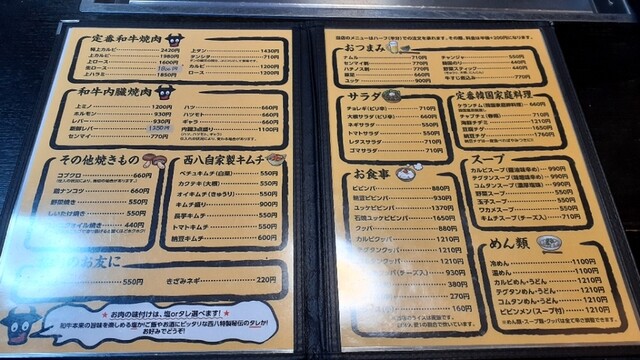 定番和牛焼肉
極上カルビ 2420円
上カルビ 1980円
上ロース 1600円
上ハラミ 1850円
上タン 1430円
テンチチ 710円
カルビ 1200円
ロース 1200円
和牛内臓焼肉
上ミノ 1200円
ホルモン 930円
レバー 930円
新鮮レバー
センマイ 770円
ハツ 660円
ハツモト 660円
ギャラ 660円
内臓3点盛り 1100円
その他焼きもの
コブクロ 660円
鶏ナンコツ 550円
野菜焼き 550円
しいたけ焼き 550円
440円
西八自家製キムチ
ペチュキムチ(白菜) 550円
カクテキ(大根) 550円
オイキムチ(きゅうり) 550円
キムチ盛り 900円
長芋キムチ 550円
トマトキムチ 550円
納豆キムチ 600円
のお友に
550円
きざみネギ 220円
お肉の味付けは、塩orタレ選べます!
和牛本来の旨味を楽しめる塩かご飯やお酒にピッタリな西八特製秘伝のタレか!
お好みでどうぞ!
おつまみ
ナムル 710円
センマイ刺し 770円
ハチノス刺し 770円
韓足 660円
ユッケ 900円
チャンジャ 550円
韓国のり 440円
野菜スティック 440円
牛すじ煮込み 770円
サラダ
チョレギ(ピリ辛) 710円
大根サラダ(ピリ辛) 660円
ネギサラダ 550円
トマトサラダ 550円
レタスサラダ 710円
ゴマサラダ 710円
定番韓国家庭料理
チャプチェ(春雨) 710円
海鮮チヂミ 710円
豆腐チゲ 1650円
納豆チゲ 1760円
お食事
ビビンバ 880円
納豆ビビンバ 930円
ユッケビビンバ 1370円
石焼ユッケビビンバ 1650円
クッパ 880円
カルビクッパ 1210円
テグタンクッパ 1210円
コムタンクッパ 1210円
930円
380円
270円
160円
スープ
カルビスープ 990円
テグタンスープ 990円
コムタンスープ 990円
野菜スープ 550円
玉子スープ 550円
ワカメスープ 550円
キムチスープ(チーズ入) 710円
めん類
冷めん 1100円
温めん 1100円
カルビめん・うどん 1210円
テグタンめん・うどん 1210円
コムタンめん・うどん 1210円
ビビンメン(スープ付) 1210円